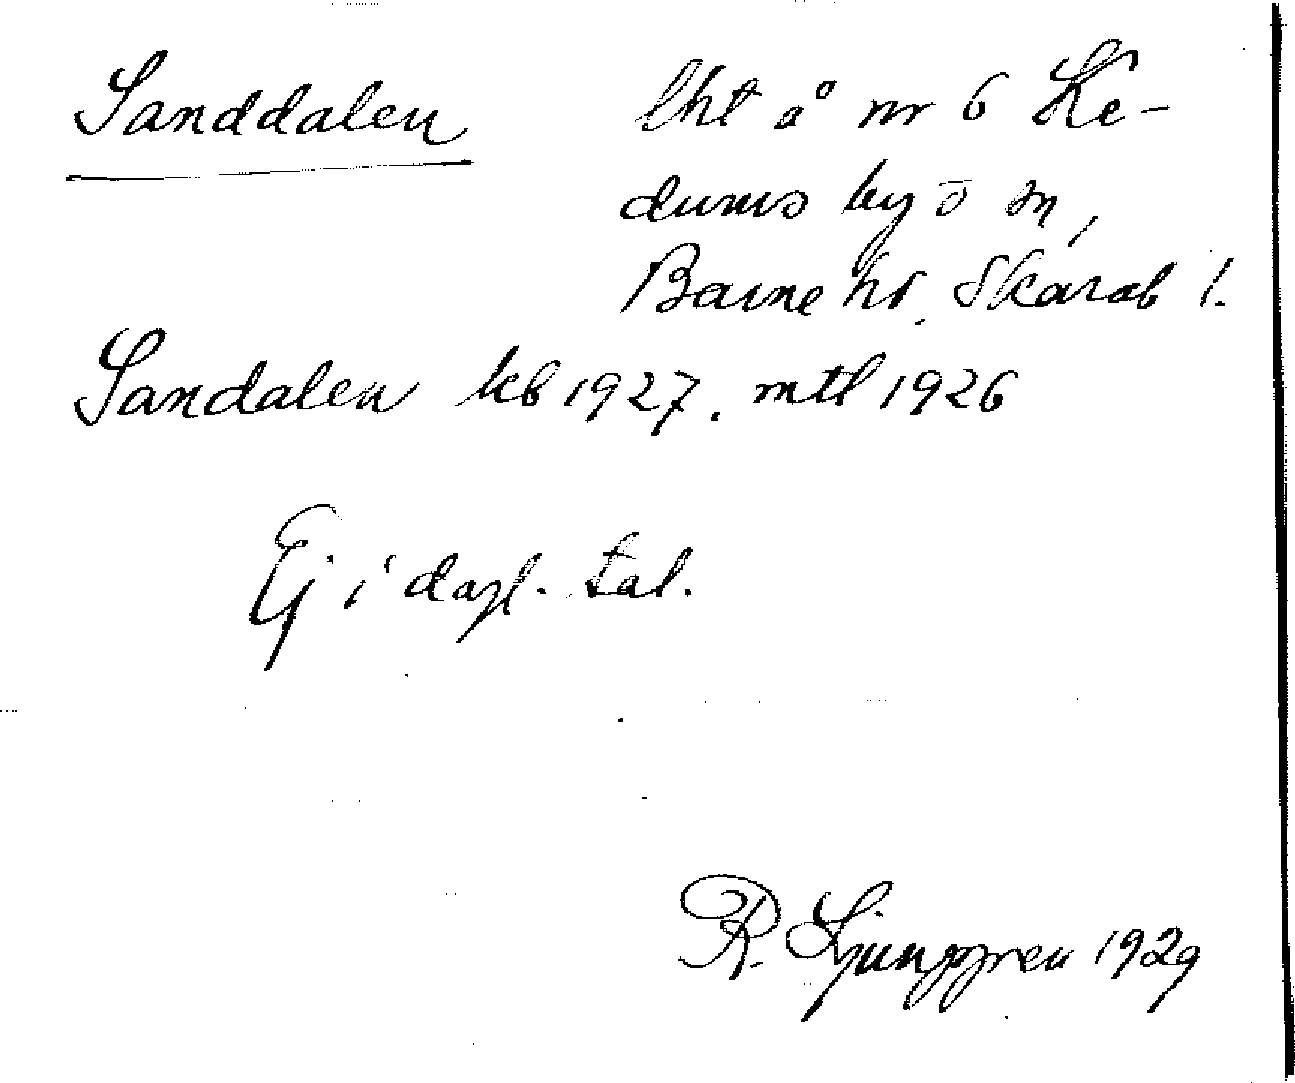 Sanddalen lht å nr 6 Ke-
dums by o sn,
Barne hd. Skarab l.
Sandalen kb 1927. mtl 1926
Ej i dagl. tal.
R. Ljunggren 1929